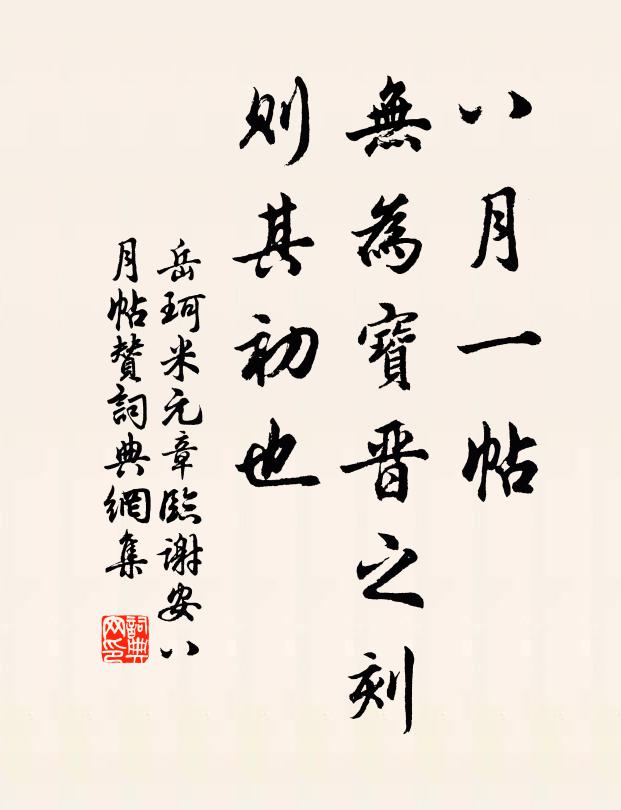 八月一帖
無為寶晉之刻
則其初也
岳珂米元章臨谢安八
月帖贊詞典網集
詞典
网印